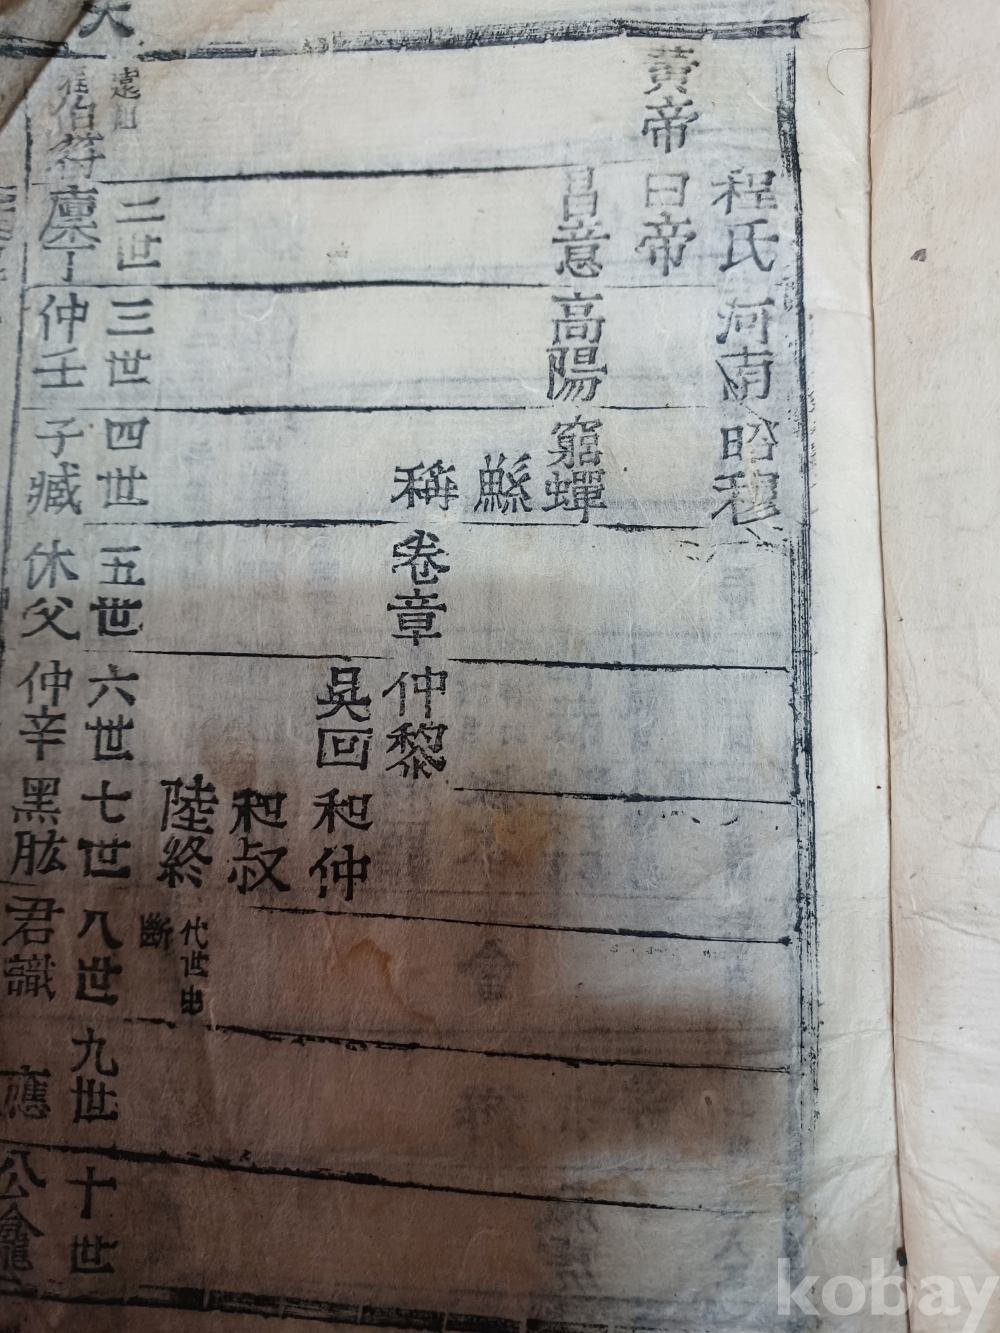 程氏河南昭穆
黃帝曰帝
昌意高陽窮蟬
鯀
稱卷章仲黎
吳回和仲
和叔
陸終
代世虫
斷
遠祖
二世三世四世五世六世七世八世九世十世
伯符
仲壬子臧休父仲辛黑肱君識應公
kobay